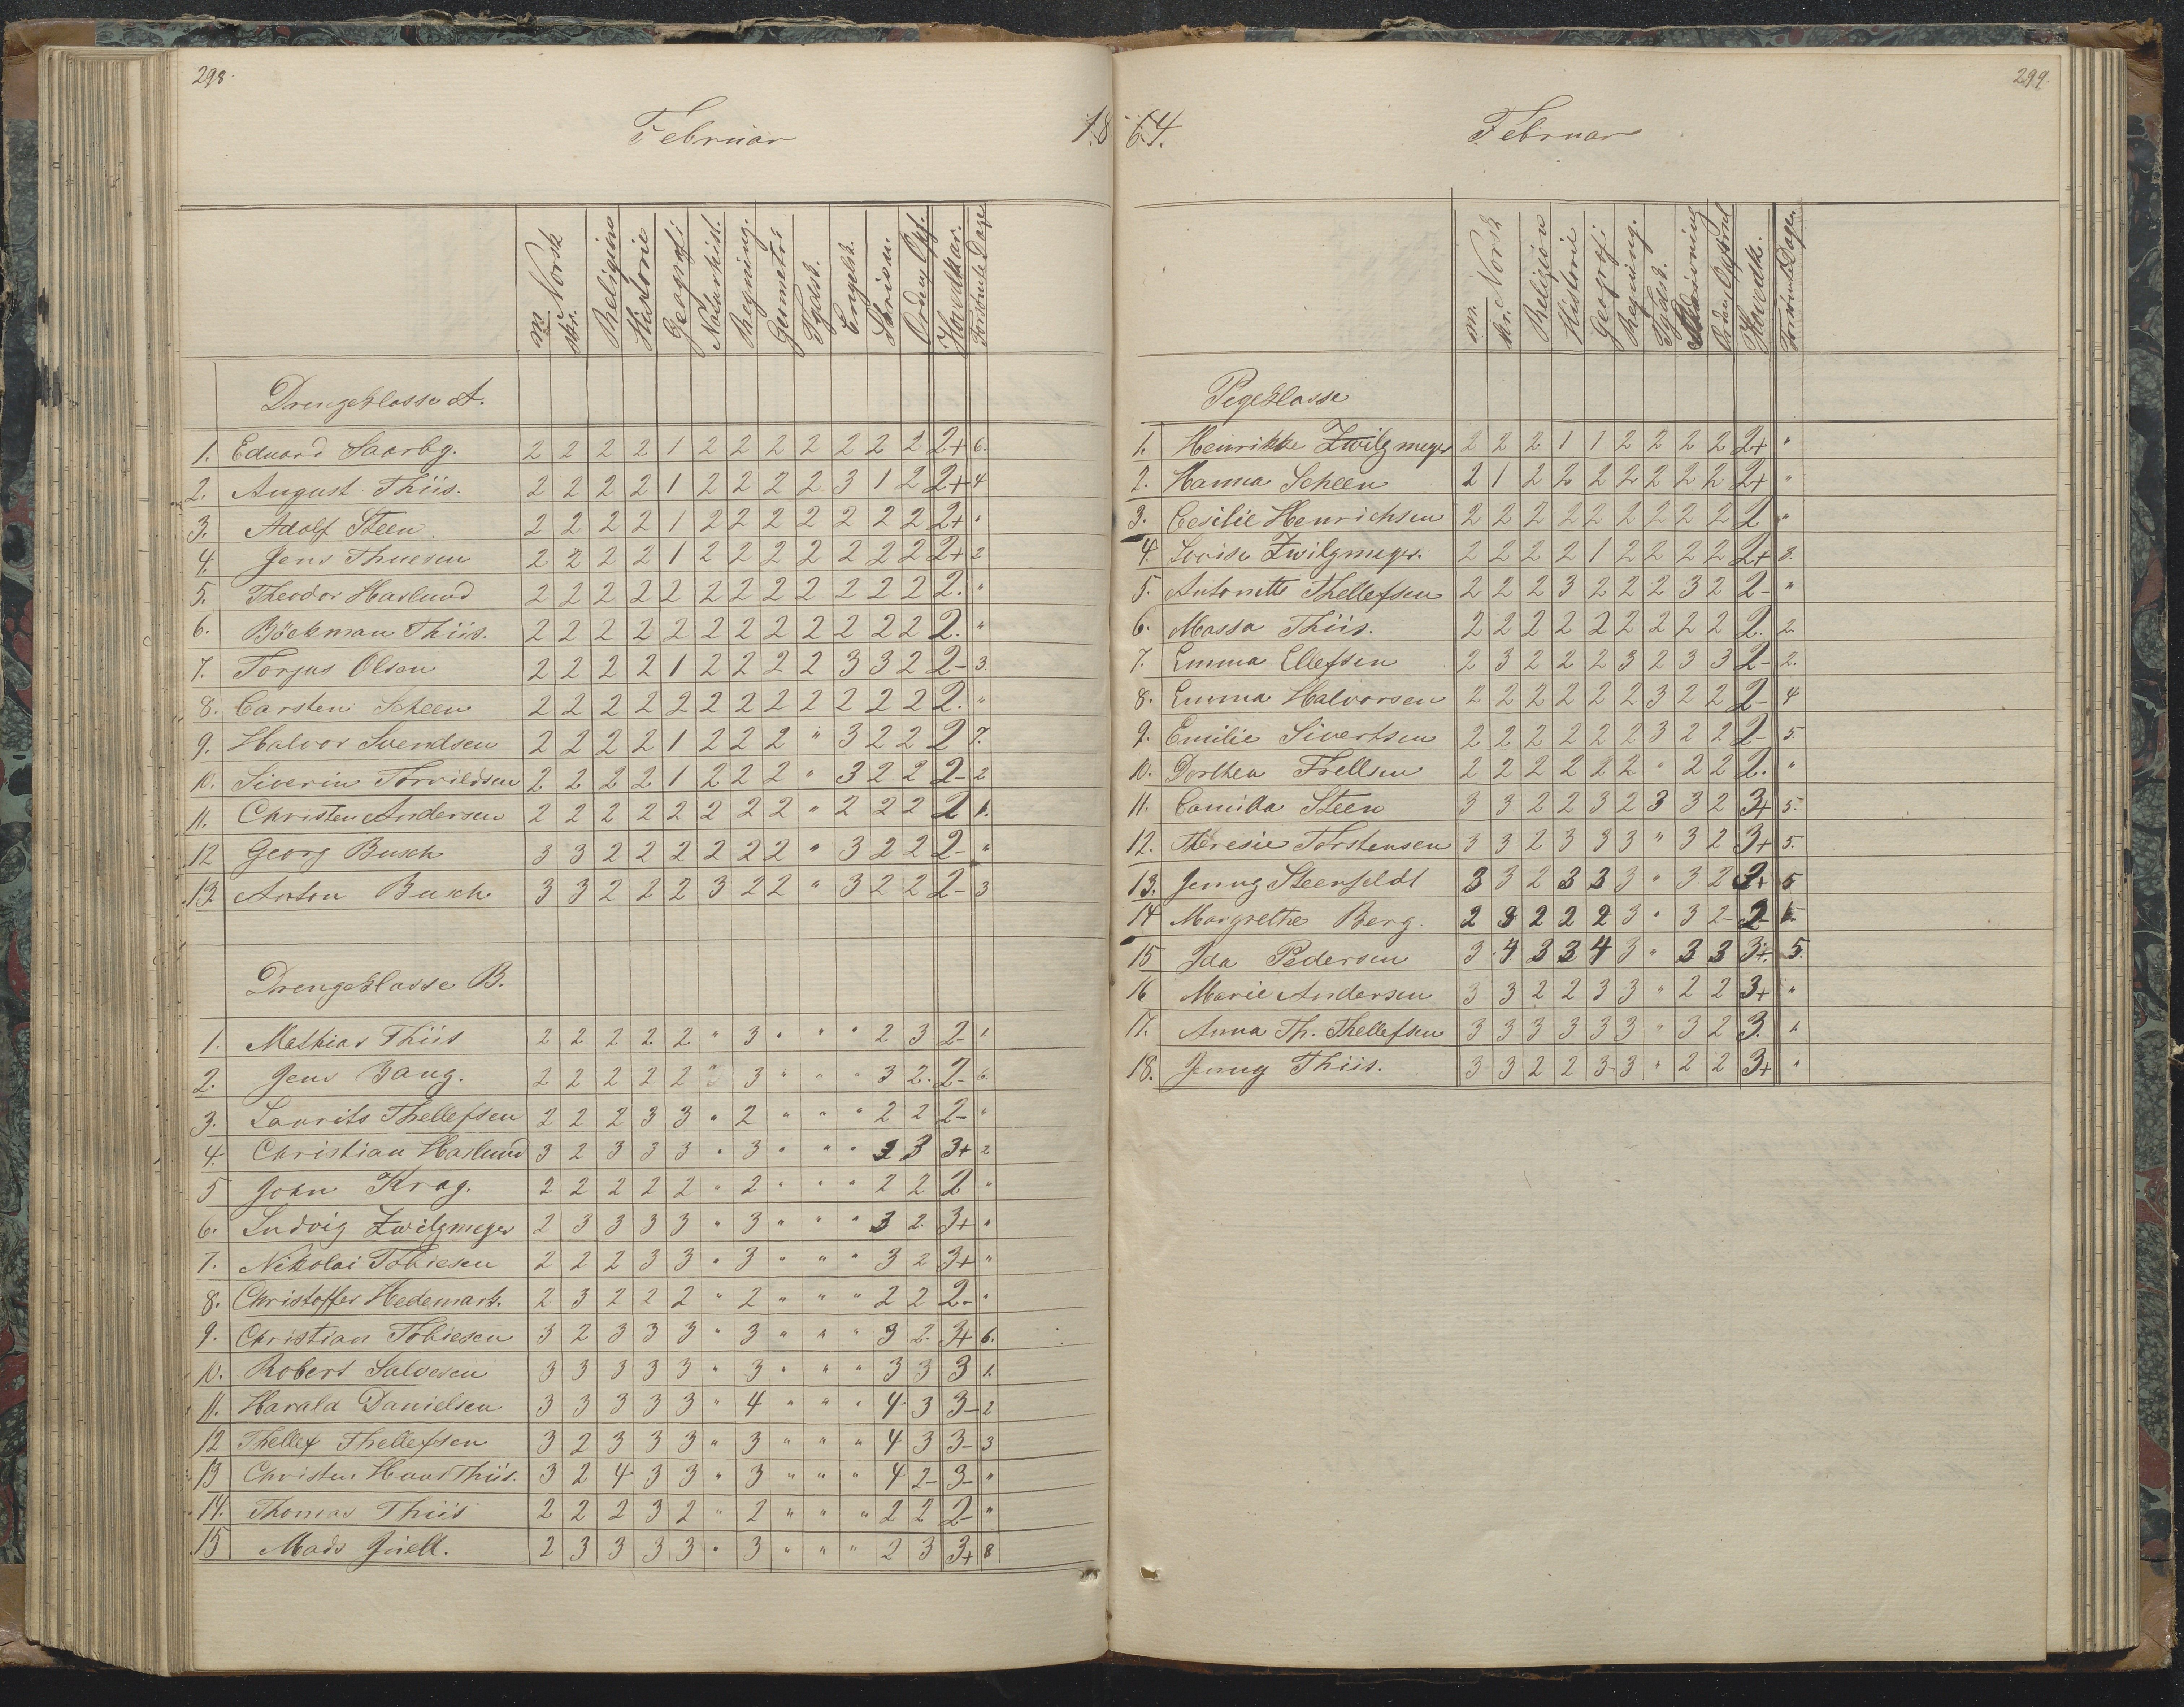 298.
Februar 18
m. Norsk skr. Religion Historie Geografi: Naturhist. Regning. Geometri: Tydsk. Engelsk. Skrivn. Orden Opf. Hovedkar. Forsømte Dage
Drengeklasse A.
1. Eduard Saarbg. 2 2 2 2 1 2 2 2 2 2 2 2 2+ 6.
2. August Thiis. 2 2 2 2 1 2 2 2 2 3 1 2 2+ 4
3. Adolf Steen 2 2 2 2 1 2 2 2 2 2 2 2 2+ "
4. Jens Thuesen 2 2 2 2 1 2 2 2 2 2 2 2 2+ 2
5. Theodor Haslund 2 2 2 2 2 2 2 2 2 2 2 2 2. "
6. Böckman Thiis. 2 2 2 2 2 2 2 2 2 2 2 2 2. "
7. Torjus Olsen 2 2 2 2 1 2 2 2 2 3 3 2 2- 3.
8. Carsten Scheen 2 2 2 2 2 2 2 2 2 2 2 2 2. "
9. Halvor Svendsen 2 2 2 2 1 2 2 2 " 3 2 2 2 7.
10. Siverin Torvildsen 2 2 2 2 1 2 2 2 " 3 2 2 2- 2
11. Christen Andersen 2 2 2 2 2 2 2 2 " 2 2 2 2 1.
12 Georg Busch 3 3 2 2 2 2 2 2 " 3 2 2 2- "
13. Anton Busch. 3 3 2 2 2 3 2 2 " 3 2 2 2- 3
Drengeklasse B.
1. Mathias Thiis 2 2 2 2 2 " 3 " " " 2 3 2- 1
2. Jens Bang. 2 2 2 2 2 " 3 " " " 3 2. 2- 6.
3. Laurits Thellefsen 2 2 2 3 3 " 2 " " " 2 2 2- "
4. Christian Haslund 3 2 3 3 3 " 3 " " " 2 3 3+ 2
5 John Krag. 2 2 2 2 2 " 2 " " " 2 2 2 "
6. Ludvig Zwilgmeyer 2 3 3 3 3 " 3 " " " 3 2. 3+ "
7. Nikolai Tobiesen 2 2 2 3 3 " 3 " " " 3 2 3+ "
8. Christoffer Hedemark. 2 3 2 2 2 " 2 " " " 2 2 2- "
9. Christian Tobiesen 3 2 3 3 3 " 3 " " " 3 2. 3+ 6.
10. Robert Salvesen 3 3 3 3 3 " 3 " " " 3 3 3 1.
11. Harald Danielsen 3 3 3 3 3 " 4 " " " 4 3 3- 2
12 Thellef Thellefsen 3 2 3 3 3 " 3 " " " 4 3 3- 3
13 Christen Hans Thiis. 3 2 4 3 3 " 3 " " " 4 2- 3- "
14. Thomas Thiis 2 2 2 3 2 " 2 " " " 2 2 2- "
15 Mads Juell. 2 3 3 3 3 " 3 " " " 2 3 3+ 8
299.
64. Februar
m. Norsk skr. Religion Historie Geografi: Regning. Tydsk. Skrivning Orden Opførsel Hovedk. Forsømte Dage.
Pigeklasse
1. Henrikke Zwilgmeyer 2 2 2 1 1 2 2 2 2 2+ "
2. Hanna Scheen 2 1 2 2 2 2 2 2 2 2+ "
3. Cesilie Henrichsen 2 2 2 2 2 2 2 2 2 2 "
4. Lovise Zwilgmeyer. 2 2 2 2 1 2 2 2 2 2+ 2.
5. Antonette Thellefsen 2 2 2 3 2 2 2 3 2 2- "
6. Massa Thiis. 2 2 2 2 2 2 2 2 2 2. 2.
7. Emma Ellefsen 2 3 2 2 2 3 2 3 3 2- 2.
8. Emma Halvorsen 2 2 2 2 2 2 3 2 2 2- 4
9. Emilie Sivertsen 2 2 2 2 2 2 3 2 2 2- 5.
10. Dorthea Frellsen 2 2 2 2 2 2 " 2 2 2. "
11. Camilla Steen 3 3 2 2 3 2 3 3 2 3+ 5.
12. Theresie Torstensen 3 3 2 3 3 3 " 3 2 3+ 5.
13. Jenny Steenfeldt 3 3 2 3 3 3 " 3 2 3+ 5
14 Margrethe Berg. 2 3 2 2 2 3 " 3 2- 2-
15 Ida Pedersen 3 4 3 3 4 3 " 3 3 3+. 5.
16 Marie Andersen 3 3 2 2 3 3 " 2 2 3+ "
17. Anna Th. Thellefsen 3 3 3 3 3 3 " 3 2 3. 1.
18. Jenny Thiis. 3 3 2 2 3 3 " 2 2 3+ "